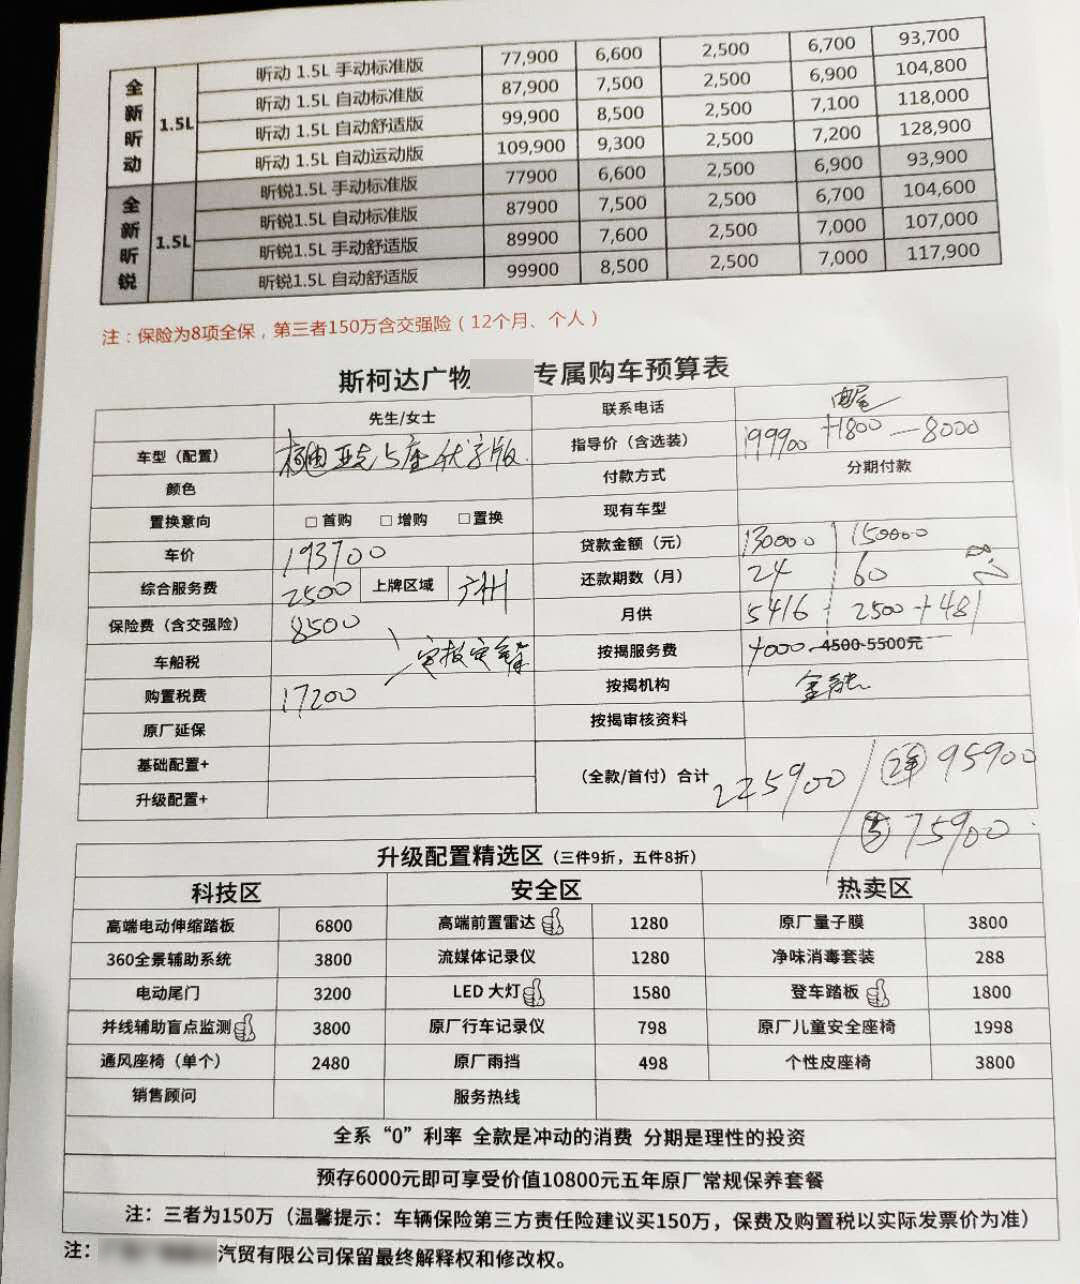 全新昕动 1.5L 昕动 1.5L 手动标准版 77,900 6,600 2,500 6,700 93,700
昕动 1.5L 自动标准版 87,900 7,500 2,500 6,900 104,800
昕动 1.5L 自动舒适版 99,900 8,500 2,500 7,100 118,000
昕动 1.5L 自动运动版 109,900 9,300 2,500 7,200 128,900
全新昕锐 1.5L 昕锐1.5L 手动标准版 77900 6,600 2,500 6,900 93,900
昕锐1.5L 自动标准版 87900 7,500 2,500 6,700 104,600
昕锐1.5L 手动舒适版 89900 7,600 2,500 7,000 107,000
昕锐1.5L 自动舒适版 99900 8,500 2,500 7,000 117,900
注：保险为8项全保，第三者150万含交强险（12个月、个人）
斯柯达广物 专属购车预算表
先生/女士 联系电话 电尾
车型（配置） 柯迪亚克5座优享版 指导价（含选装） 199900 +1800 -8000
颜色 付款方式 分期付款
置换意向 □ 首购 □ 增购 □ 置换 现有车型
车价 193700 贷款金额（元） 130000 150000
综合服务费 2500 上牌区域 广州 还款期数（月） 24 60
保险费（含交强险） 8500 月供 5416 2500+481
车船税 实报实销 按揭服务费 4000 4500-5500元
购置税费 17200 按揭机构 金融
原厂延保 按揭审核资料
基础配置+ （全款/首付）合计 225900 / 2年 95900
升级配置+ 5 75900
升级配置精选区（三件9折，五件8折）
科技区 安全区 热卖区
高端电动伸缩踏板 6800 高端前置雷达 1280 原厂量子膜 3800
360全景辅助系统 3800 流媒体记录仪 1280 净味消毒套装 288
电动尾门 3200 LED 大灯 1580 登车踏板 1800
并线辅助盲点监测 3800 原厂行车记录仪 798 原厂儿童安全座椅 1998
通风座椅（单个） 2480 原厂雨挡 498 个性皮座椅 3800
销售顾问 服务热线
全系“0”利率 全款是冲动的消费 分期是理性的投资
预存6000元即可享受价值10800元五年原厂常规保养套餐
注：三者为150万（温馨提示：车辆保险第三方责任险建议买150万，保费及购置税以实际发票价为准）
注： 汽贸有限公司保留最终解释权和修改权。